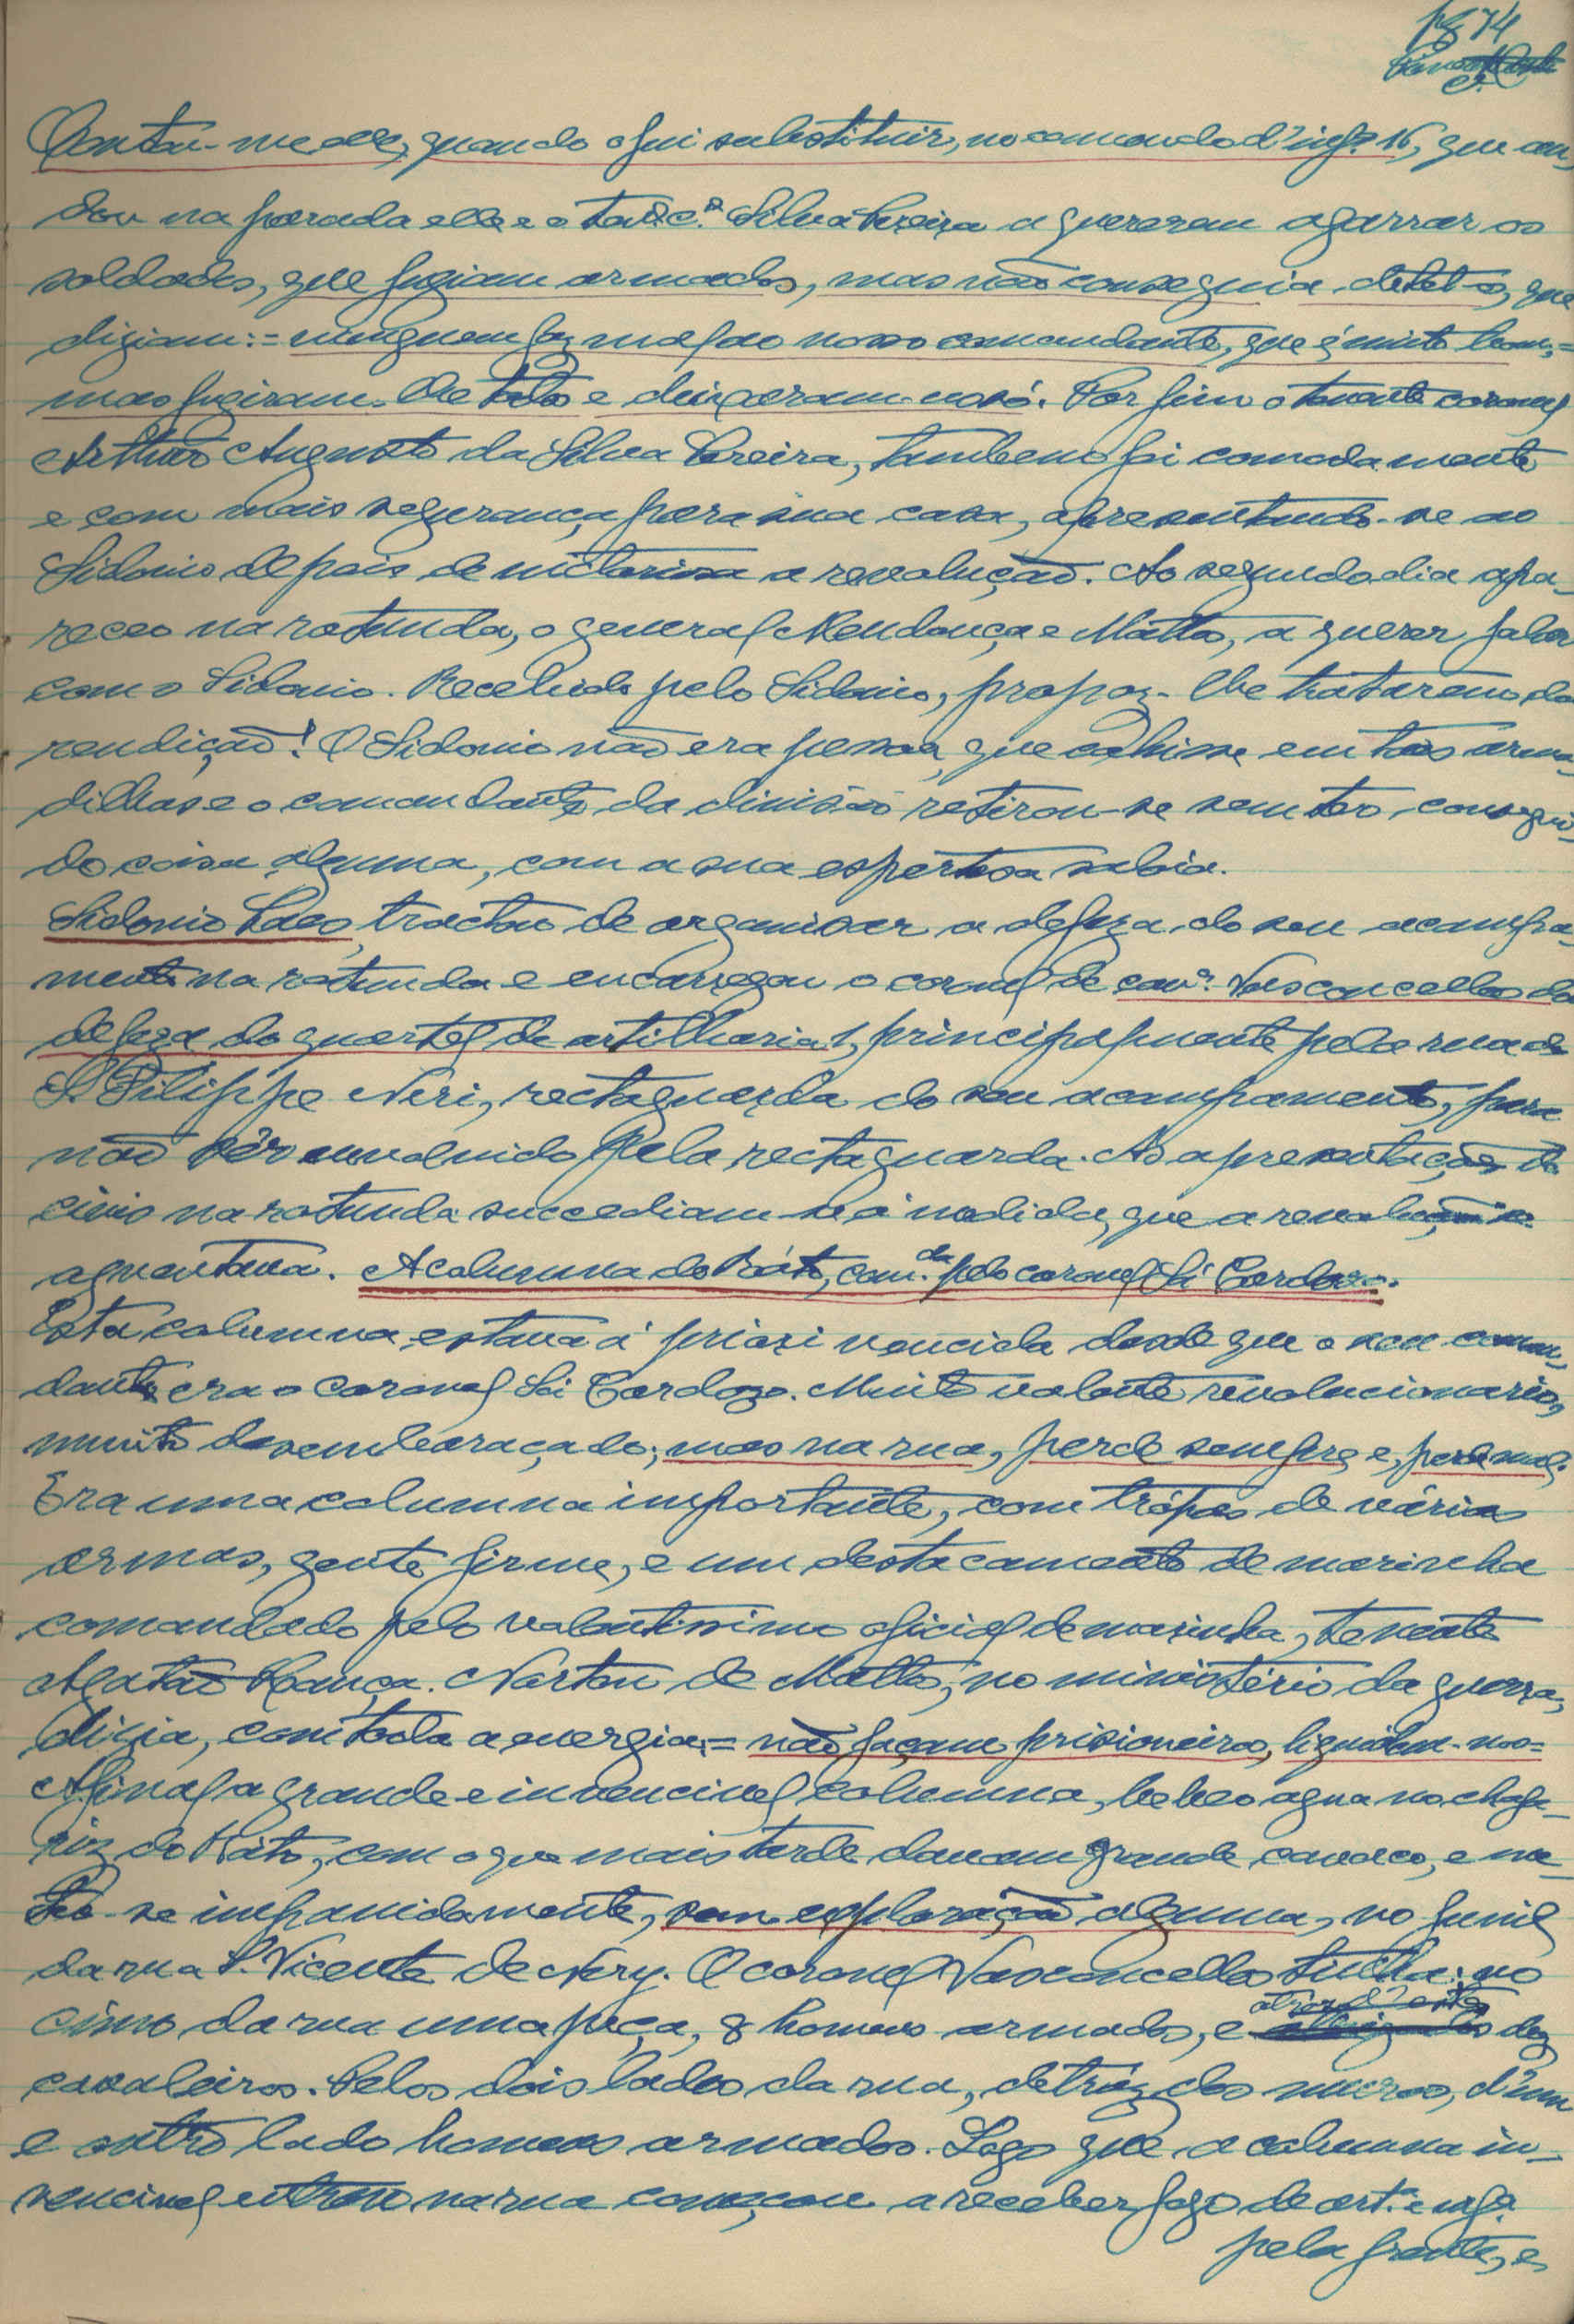 pg 74
Contou-me elle, quando o fui substituir, no comando d'infª 16, que an-
dou na parada elle e o ten.e c.el Silva Pereira a quererem agarrar os
soldados, que fugiam armados, mas não conseguia detel-os, que
diziam:= ninguem faz mal ao nosso comandante, que é muito bom,=
mas fugiram-lhe todos e deixaram-no só. Por fim o tenente coronel
Arthur Augusto da Silva Pereira, tambem foi comodamente
e com mais segurança para sua casa, apresentando-se ao
Sidonio depois de victoriosa a revolução. Ao segundo dia apa-
receo na rotunda, o general Mendonça e Mattos, a querer falar
com o Sidonio. Recebido pelo Sidonio, propoz-lhe tratarem da
rendição! O Sidonio não era pessoa, que cahisse em tais arma-
dilhas e o comandante da divisão retirou-se sem ter consegui-
do coisa alguma, com a sua esperteza saloia.
Sidonio Paes, tractou de organisar a defeza do seu acampa-
mento na rotunda e encarregou o coronel de cavª. Vasconcellos da
defeza do quartel de artilharia 1, principalmente pela rua de
S. Filippe Neri, rectaguarda do seu acampamento, para
não sêr envolvido pela rectaguarda. As apresentações de
civis na rotunda succediam-se á medida, que a revolução
aguentava. A columna do Ráto, com.da pelo coronel Sá Cardozo.
Esta columna estava á priori vencida desde que o seu coman-
dante era o coronel Sá Cardozo. Muito valente revolucionario,
muito desembaraçado; mas na rua, perde sempre e, perde mal.
Era uma columna importante, com trópas de várias
armas, gente firme, e um destacamento de marinha
comandado pelo valentissimo oficial de marinha, tenente
Agatão Lança. Norton de Mattos, no ministério da guerra,
dizia, com toda a energia,= não façam prisioneiros, liquidem-nos=
Afinal a grande e invencivel columna, bebeo agua no chafa-
riz do Ráto, com o que mais tarde davam grande cavaco, e me-
teo-se impavidamente, sem exploração alguma, no funil
da rua S. Vicente de Nery. O coronel Vasconcellos tinha: no
cimo da rua uma peça, 8 homens armados, e atraz d'estes dez
cavaleiros. Pelos dois lados da rua, detraz dos muros, d'um
e outro lado homens armados. Logo que a columna in-
vencivel entrou na rua começou a receber fogo de artª. e infª.
pela frente, e